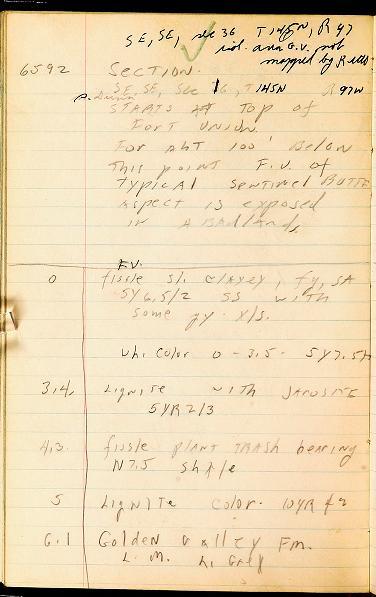 SE, SE, sec 36 T 145N, R 97
and G.V. not
mapped by
6592 Section.
SE, SE, Sec 36, T 145N R 97W
STARTS AT Top of
FORT UNION.
FOR ABT 100' Below
This point F.U. of
TYPICAL Sentinel BUTTE
Aspect is exposed
in A BADLANDS
F.U.
0 fissle sl. clayey, fy, SA
5Y6.5/2 SS with
some gy. x/s.
Wh. Color 0 - 3.5 - 5Y7.5/
3.4 Lignite with JAROSITE
5YR2/3
4.3 fissle PLANT TRASH bearing
N7.5 shale
5 Lignite Color. 10YR
6.1 Golden Valley Fm.
L. M. Lt. Grey